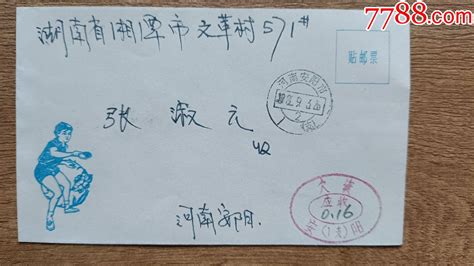 7788.com
湖南省湘潭市文革村571#
贴邮票
河南安阳
张淑元
收
欠资
应收
0.16
安(1支)阳
河南安阳.